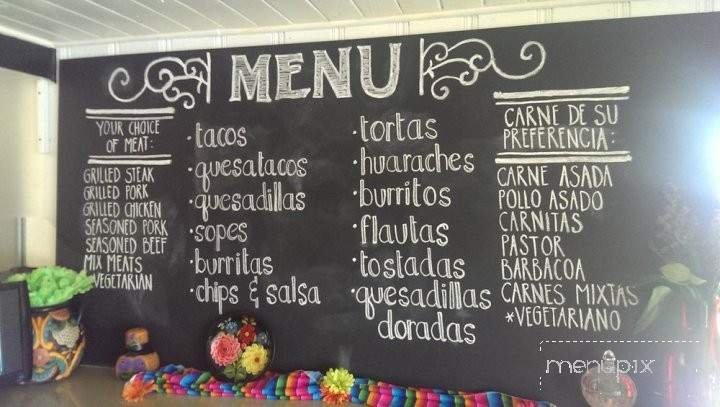 MENU
YOUR CHOICE
OF MEAT:
GRILLED STEAK
GRILLED PORK
GRILLED CHICKEN
SEASONED PORK
SEASONED BEEF
MIX MEATS
*VEGETARIAN
· tacos
· quesatacos
· quesadillas
· sopes
· burritas
· chips & salsa
· tortas
· huaraches
· burritos
· flautas
· tostadas
· quesadillas
doradas
CARNE DE SU
PREFERENCIA:
CARNE ASADA
POLLO ASADO
CARNITAS
PASTOR
BARBACOA
CARNES MIXTAS
*VEGETARIANO
menupix